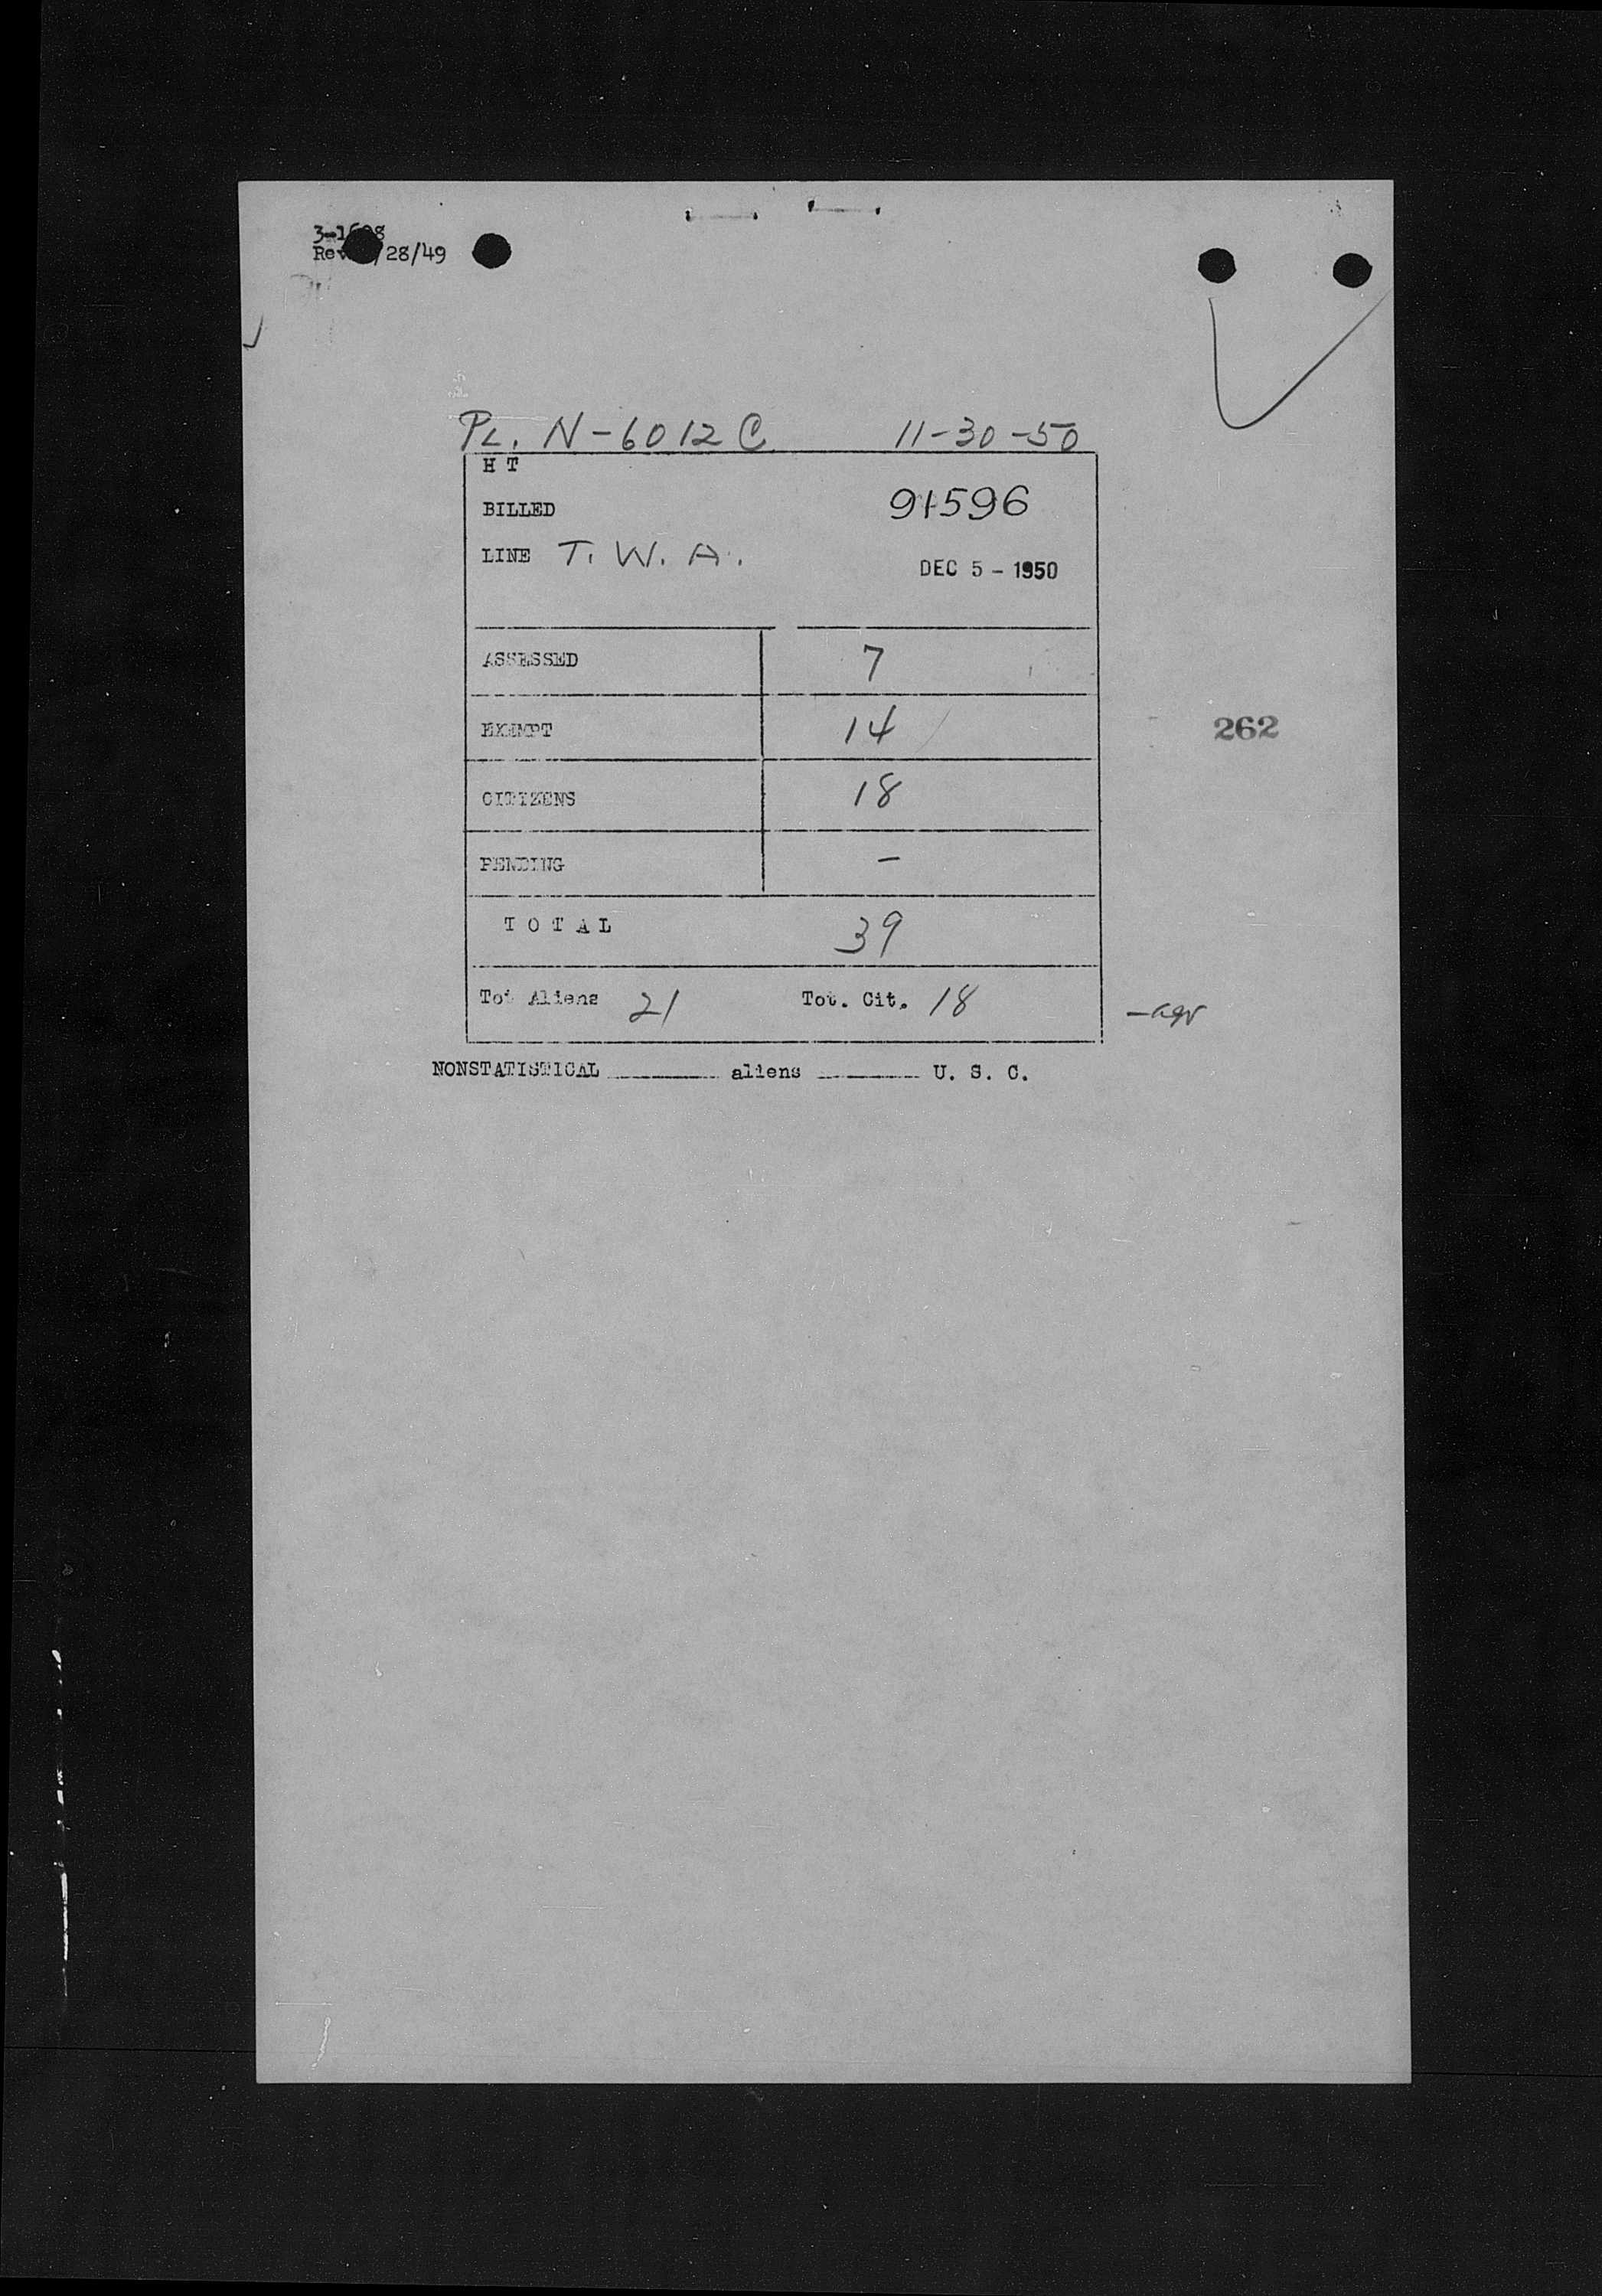 3-16 8
Rev. /28/49
PL. N-6012C 11-30-50
H T
BILLED 91596
LINE T. W. A.
DEC 5 - 1950
ASSESSED 7
EXEMPT 14
262
CITIZENS 18
PENDING –
T O T A L 39
Tot Aliens 21 Tot. Cit. 18
NONSTATISTICAL ______ aliens ______ U. S. C.